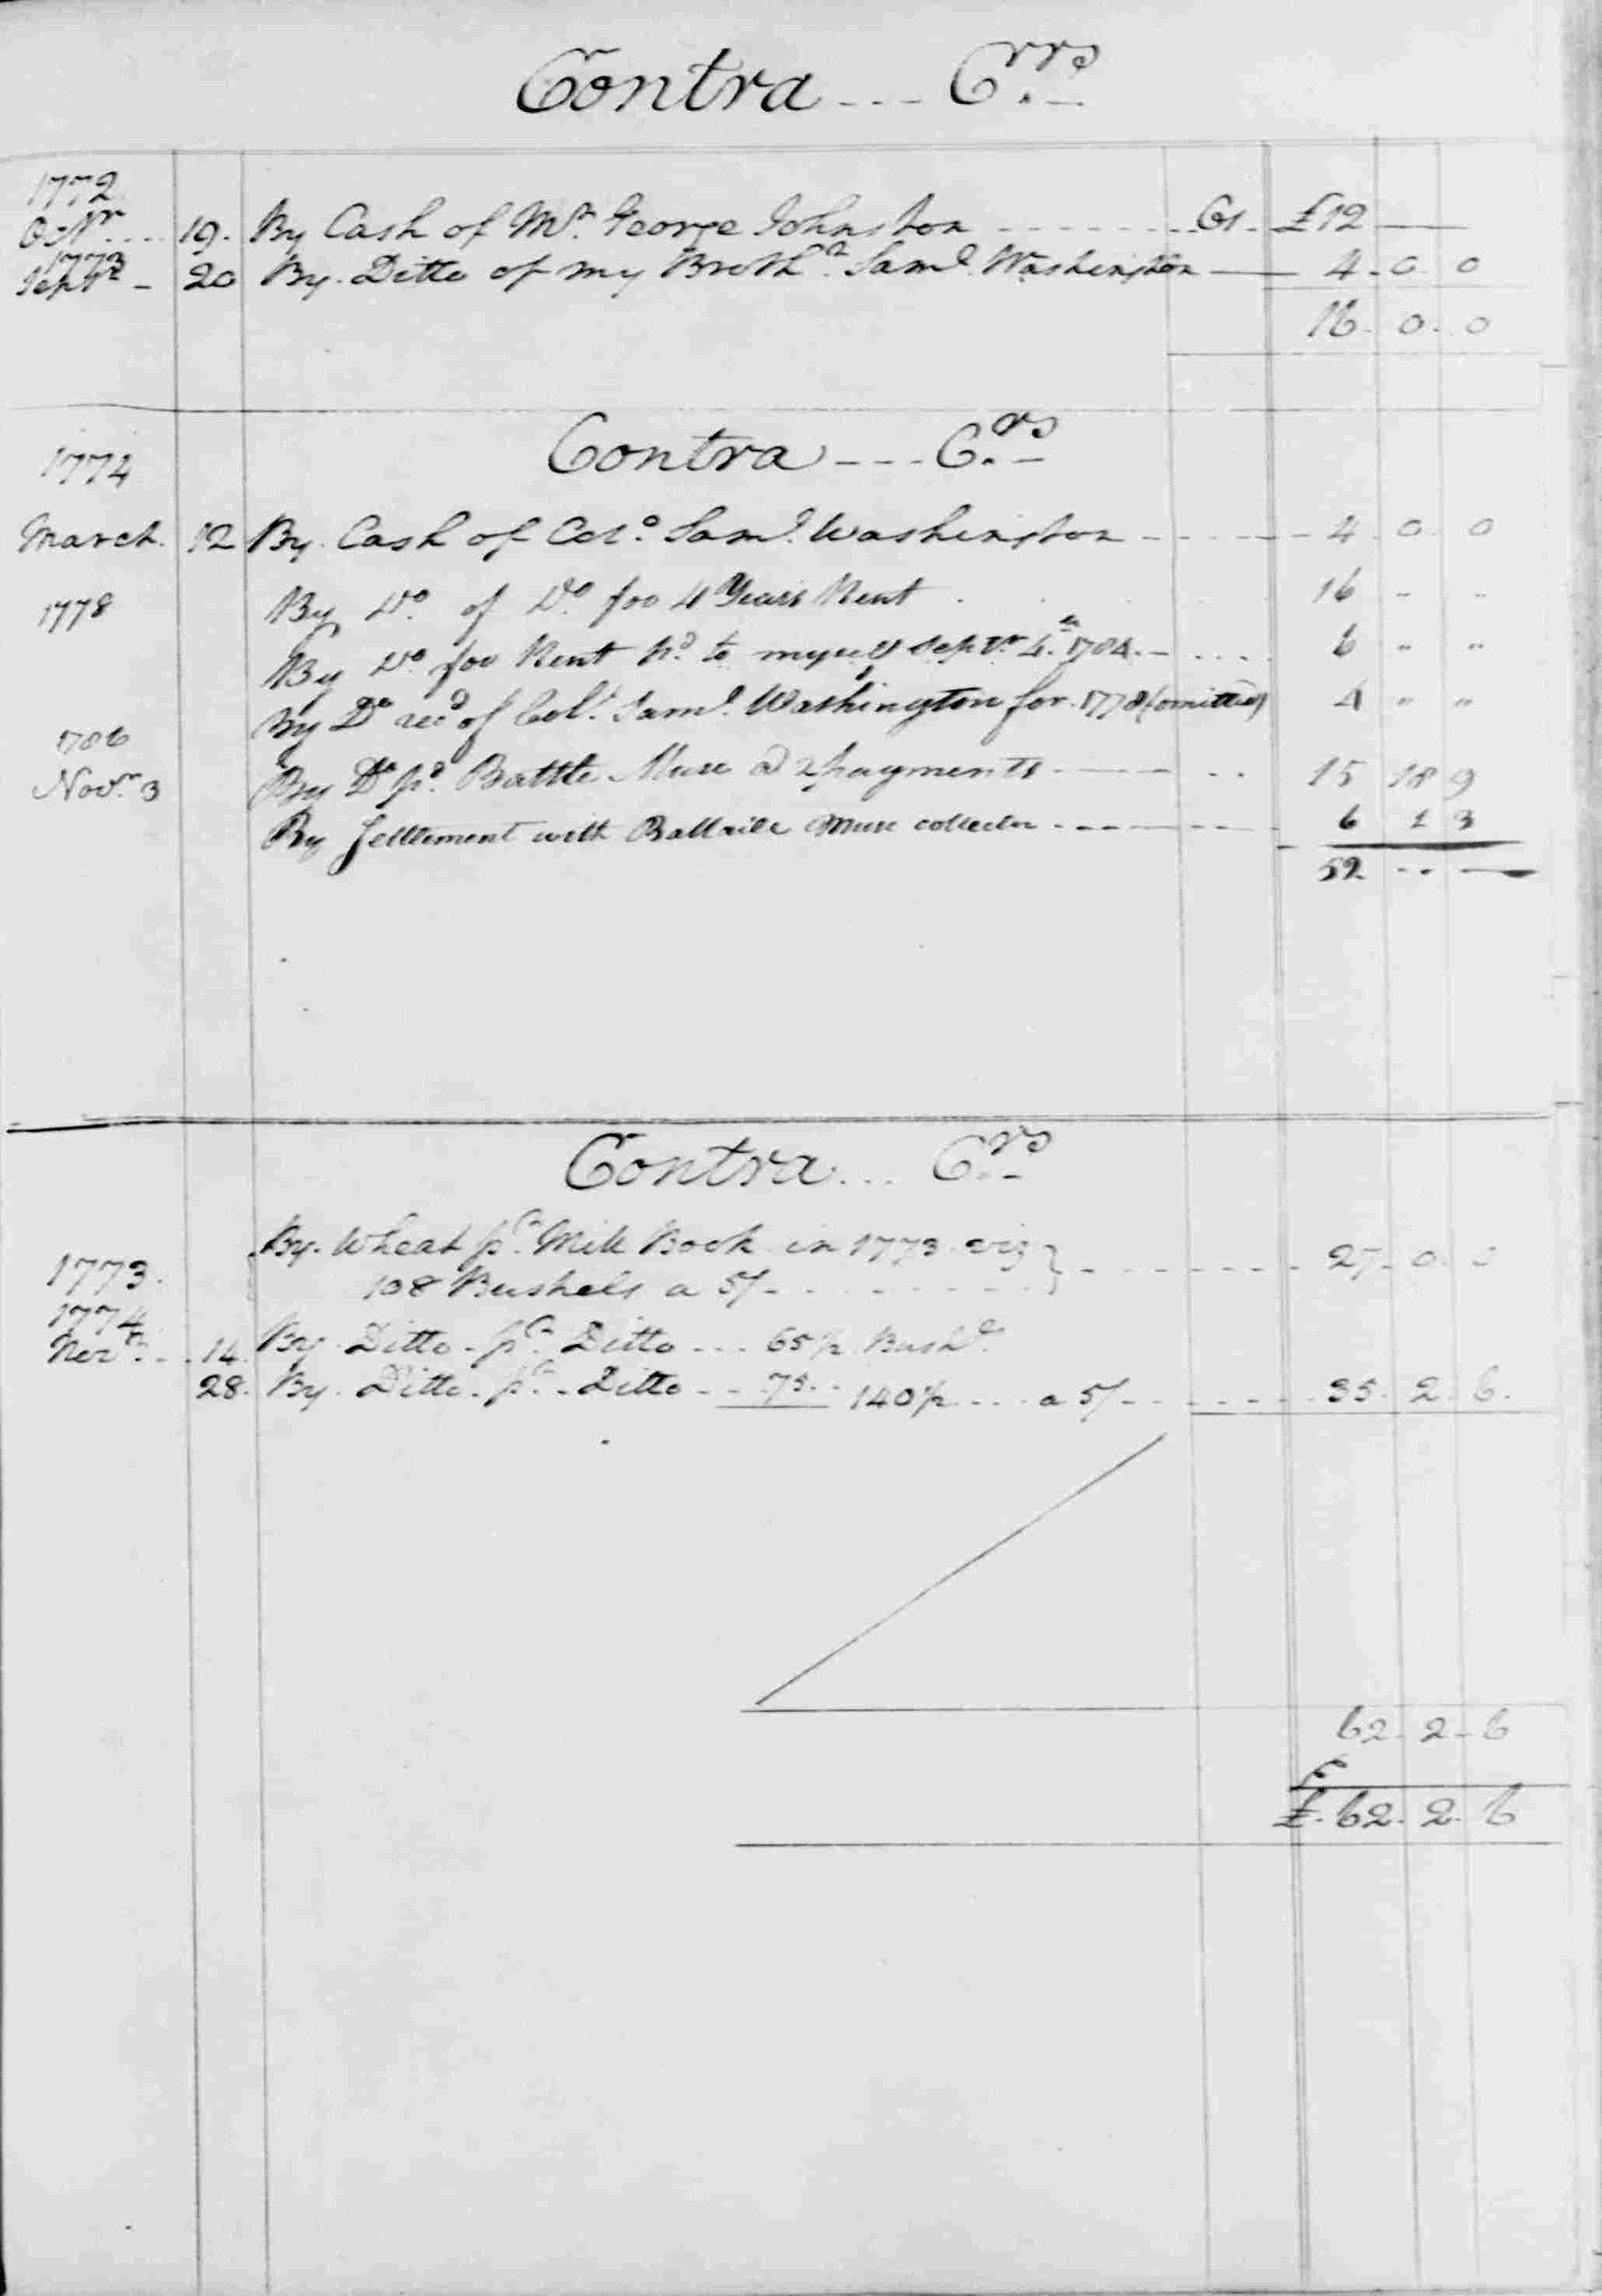 Contra --- C.rs
1772
Octr ... 19. By Cash of Mr. George Johnston ------- 61. £12 —
1773
Septr - 20 By Ditto of my Brothr. Saml. Washington — 4. 0. 0
16. 0. 0
Contra --- C.rs
1774
March. 12 By Cash of Colo. Saml. Washington ------ 4. 0. 0
1778 By Do. of Do. for 4 Years Rent . . . 16 " "
By Do for Rent pd. to myself Septr. 4.th 1784. - .... 6 " "
By Do recd of Colo. Saml. Washington for 1778 (omitted) 4 " "
1786
Novr. 3 By Do pd. Battle Muse @ 2 payments ---- .. 15 18 9
By Settlement with Battaile Muse collector ------ 6 1 3
52 .. —
Contra ... C.rs
1773. By Wheat pr. Mill Book in 1773. viz
108 Bushels a 5/- ........ 27. 0. 0
1774
Novr. .. 14. By Ditto pr. Ditto ... 65½ Bushls
28. By Ditto. pr. Ditto -- 75 .. 140½ ... a 5/- ...... 35. 2. 6.
62. 2. 6
£. 62. 2. 6